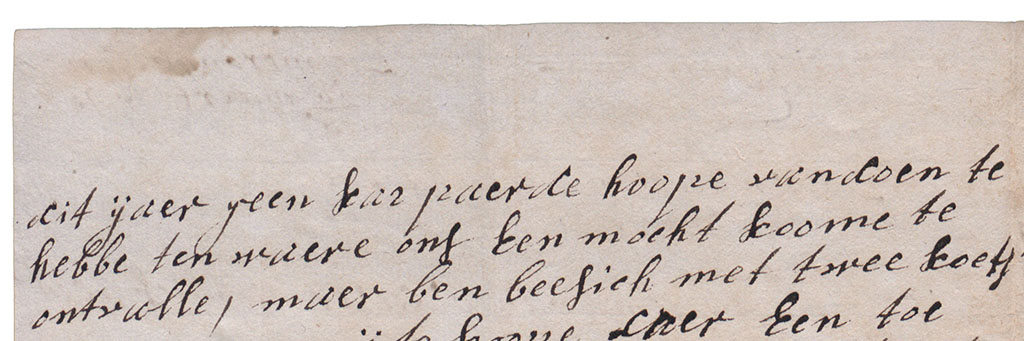 dit ÿaer geen kar paerde hoope vandoen te
hebbe ten waere ons Een mocht koome te
ontvalle, maer ben beesich met twee koets
daer Een toe